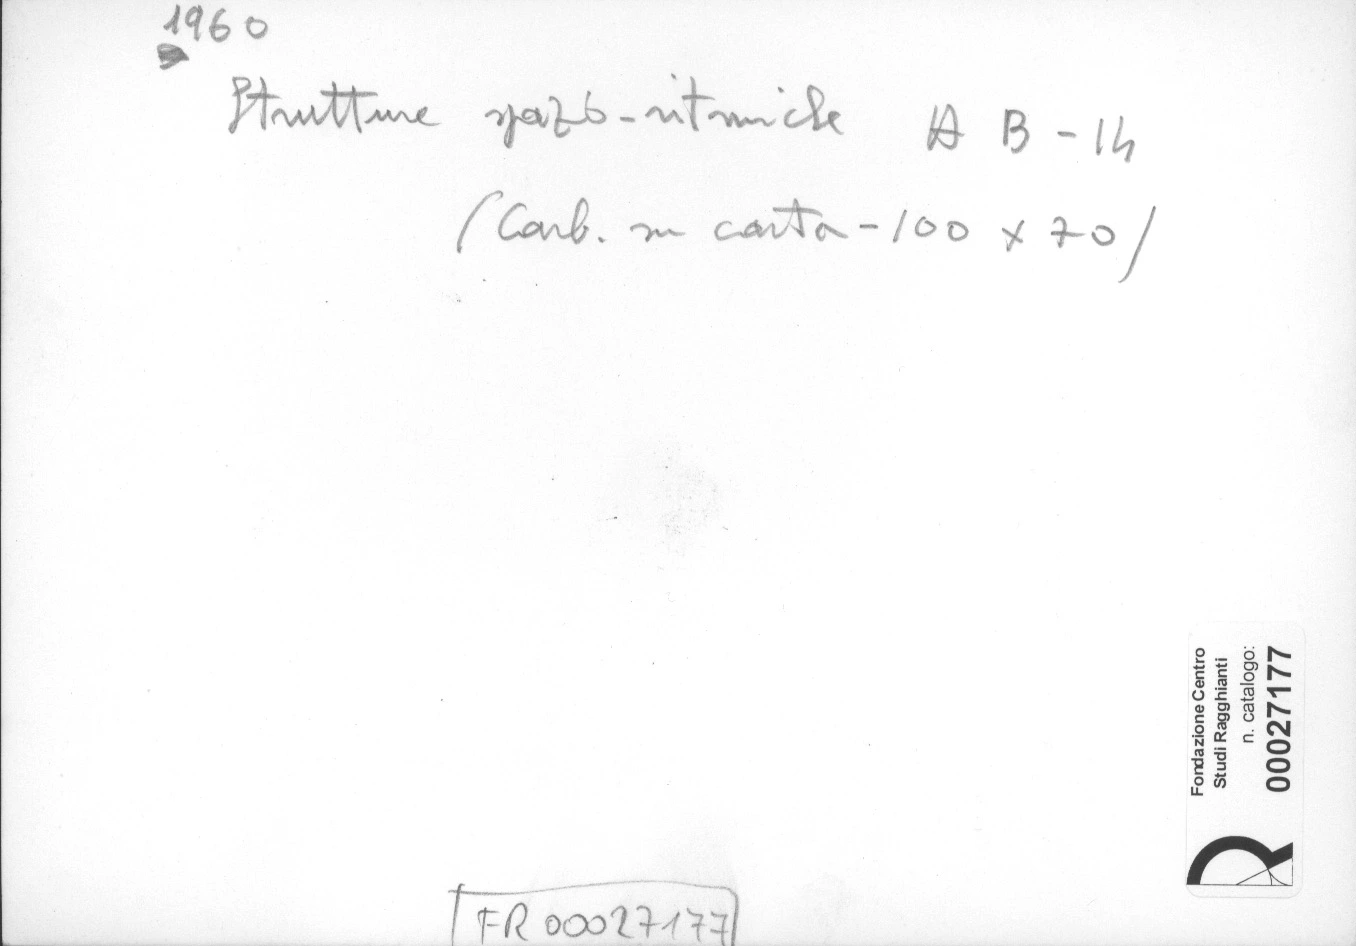 1960
Strutture spazio-ritmiche A B - 14
(Carb. su carta - 100 x 70)
Fondazione Centro
Studi Ragghianti
n. catalogo:
00027177
FR 00027177